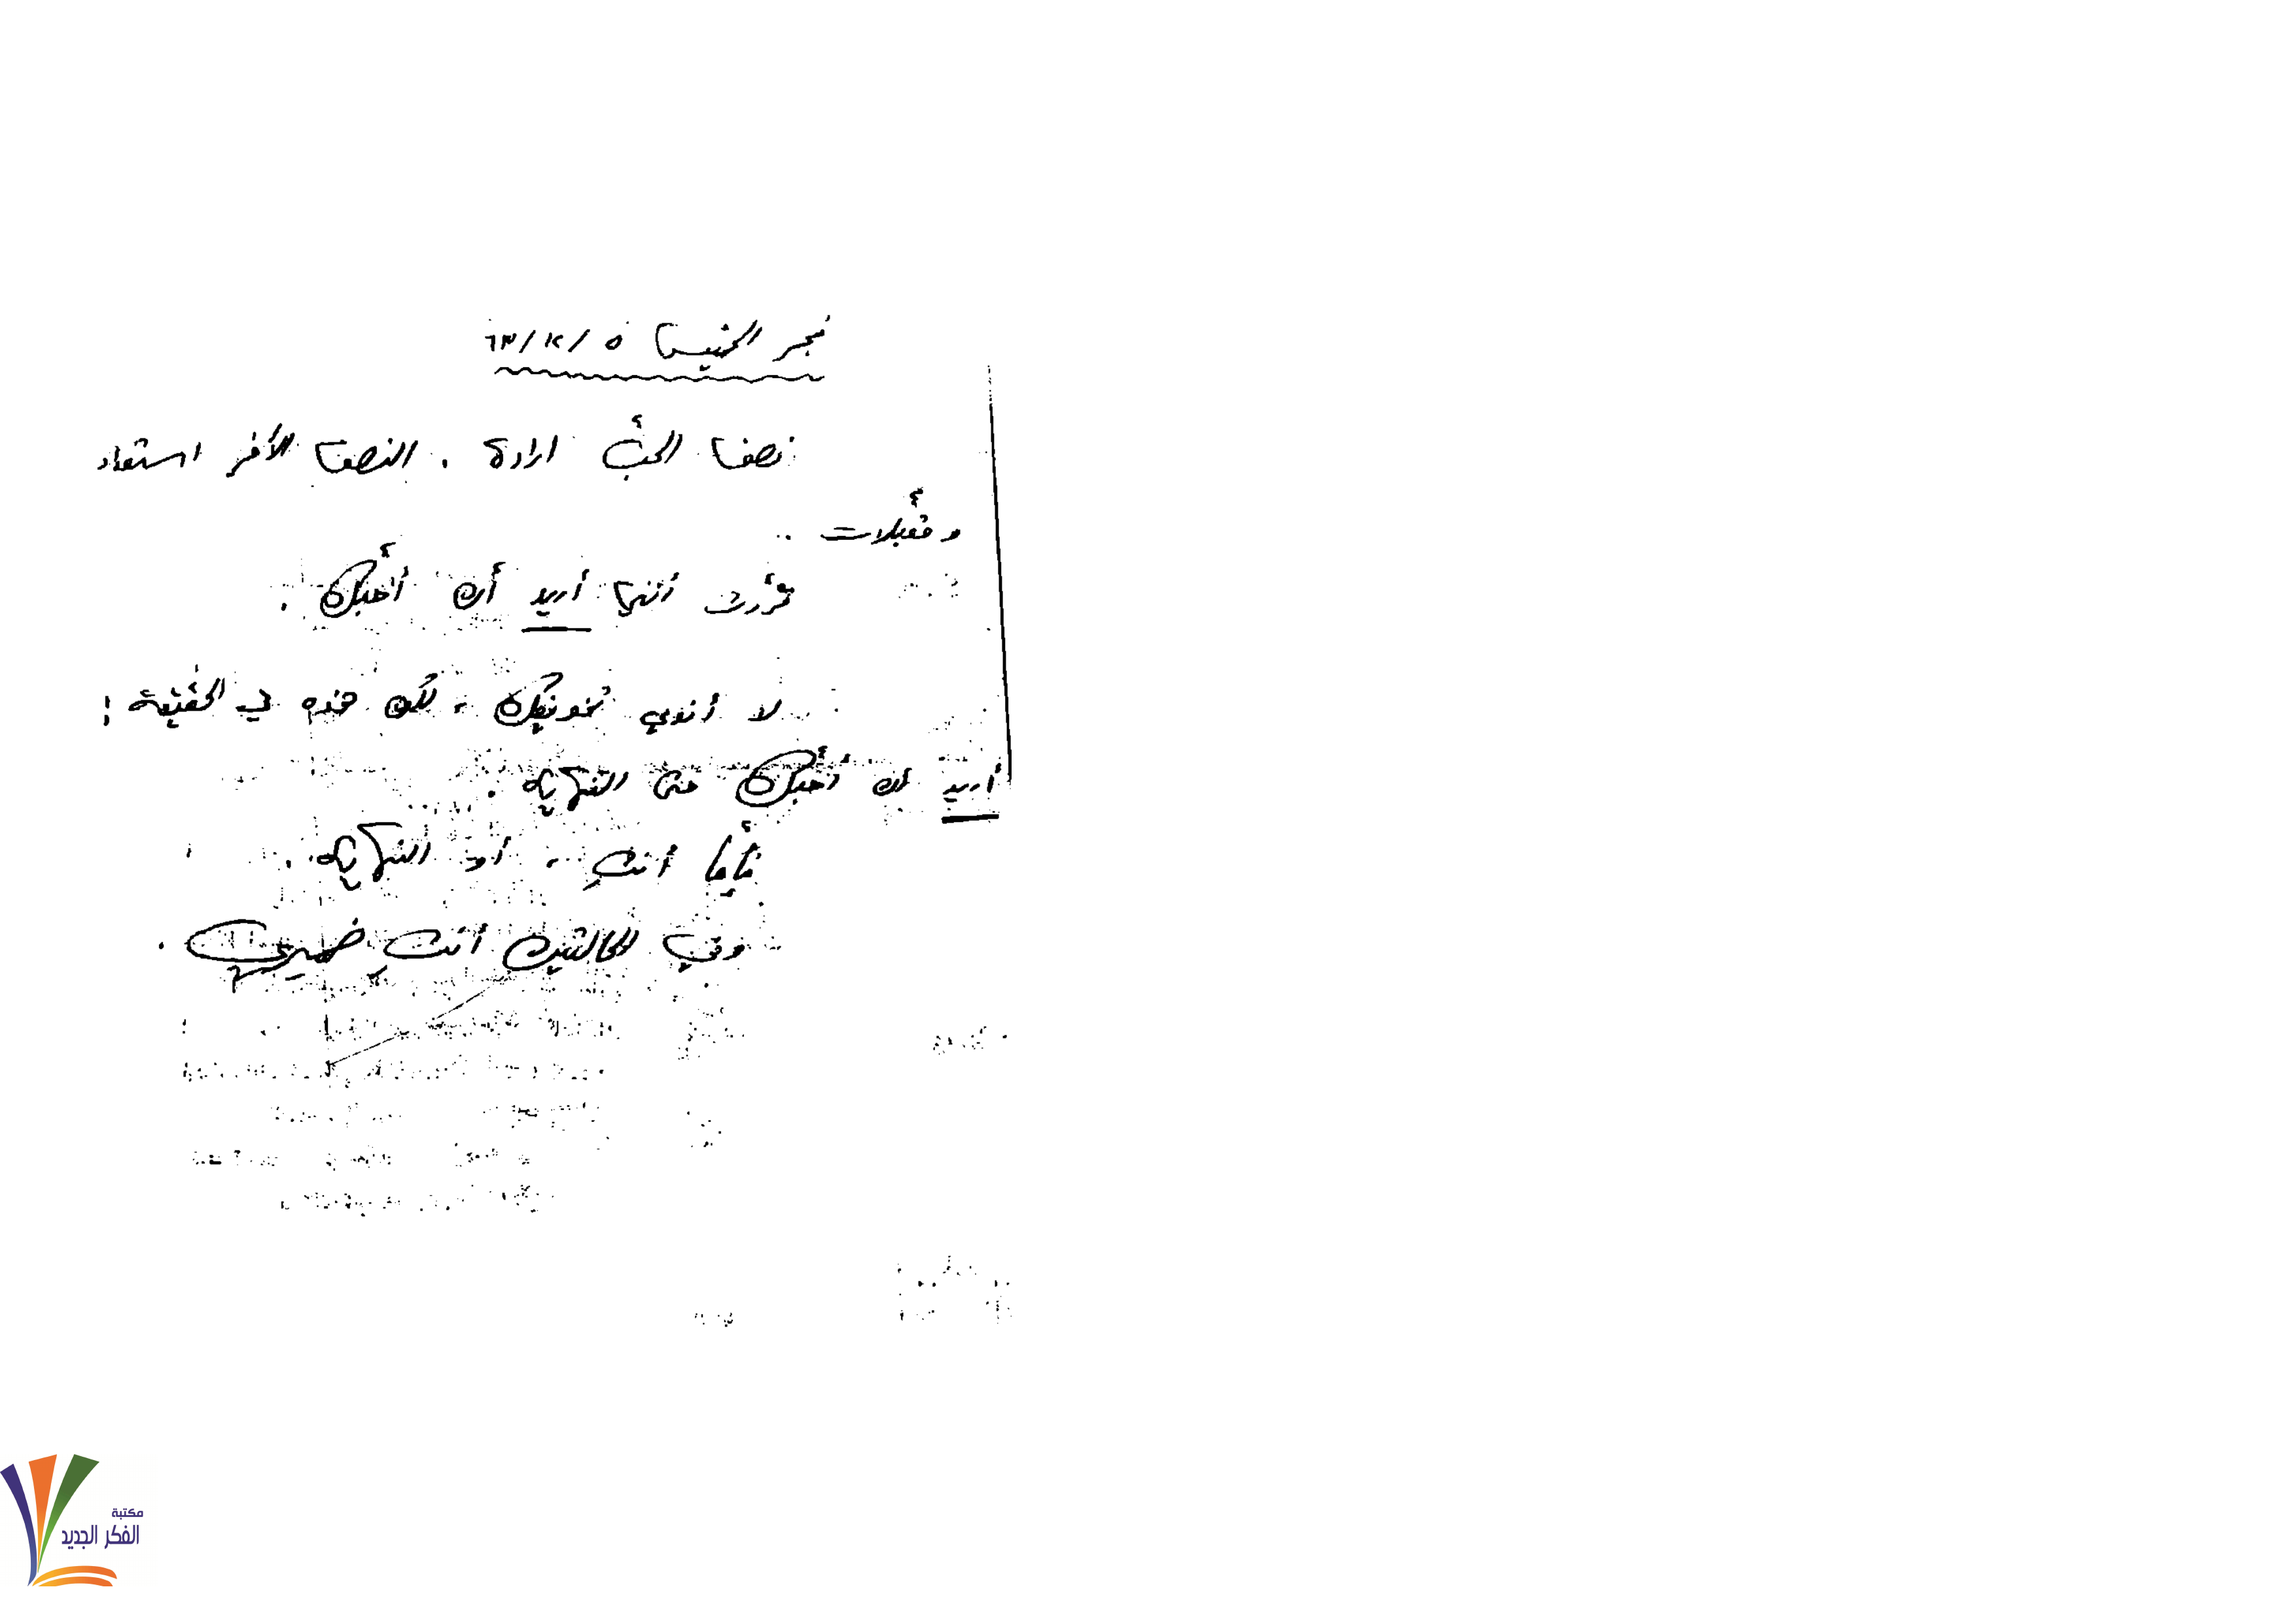 فجر الخميس ٥ / ١٢ / ٦٣
نصف الحبّ ارادة . النصف الآخر استعداد
وتقبّلات ..
قرّرت أنني أريد أن أحبّك .
لا أنوي تخونيك ، لكن هذه هي الحقيقة :
أريد أن أحبّك حتى النهاية .
فإمّا أنتِ ، أو النهاية .
وفي الحالتين أنتِ ضميري .
مكتبة
الفكر الجديد